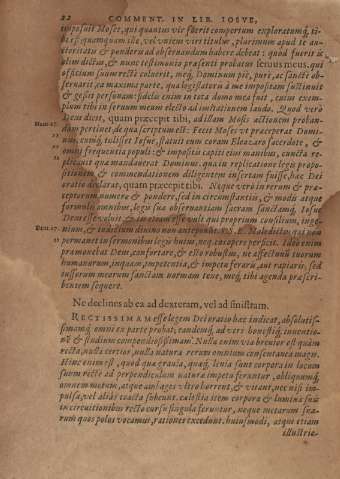 22 COMMENT. IN LIB. IOSVE,
imposuit Moses, qui quantus vir fuerit compertum exploratumq́, ti-
bi est quamquam ibi, vel vniem viri titulus, plurimum apud te au-
ctoritatis & ponderis ad obseruandum habere debeat: quod fuerit is
olim dictus, & nunc testimonio præsenti probatus seruus meus, qui
officium suum rectè coluerit, meq́, Dominum piè, purè, ac sanctè ob-
seruarit, ea maxima parte, qua legislatoris à me impositam sustinuit
& gessit personam: fidelis enim in tota domo mea fuit, cuius exem-
plum tibi in seruum meum electo ad imitationem laudo. Quod verò
Deus dicit, quam præcepit tibi, ad illam Mosis actionem proban-
dam pertinet, de qua scriptum est: Fecit Moses vt præceperat Domi-
nus, cumq́, tulisset Iosue, statuit eum coram Eleazaro sacerdote, &
omni frequentia populi: & impositis capiti eius manibus, cuncta re-
plicauit quæ mandauerat Dominus. qua in repetitione legis propo-
sitionem & commendationem diligentem insertam fuisse, hæc Dei
oratio declarat, quam præcepit tibi. Neque verò in rerum & præ-
ceptorum numero & pondere, sed in circumstantiis, & modis atque
formulis omnibus, legis suæ obseruationem sartam sanctamq́, Iosue
Deus esse voluit & in etiam esse vult qui proprium consilium, inge-
nium, & iudicium diuino non anteponūt. Maledictus qui non
permanet in sermonibus legis huius, neq́, eos opere perficit. Ideò enim
præmonebat Deus, confortare, & esto robustus, ne affectuum tuorum
humanorum, inquam, impotentia, & impetu feraris, aut rapiaris: sed
iussorum meorum sanctam normam teneas, meq́, tibi agenda præscri-
bentem sequere.
Ne declines ab ea ad dexteram, vel ad sinistram.
RECTISSIMAM esse legem Dei oratio hæc indicat, absolutis-
simamq́, omni ex parte probat; eandemq́, ad veræ honestatis, inuentio-
nē & studium compendiosissimam. Nulla enim via breuior est quàm
recta, nulla certior, nulla natura rerum omnium consentanea magis.
Hinc enim est, quòd quæ grauia, quæq́, leuia sunt corpora in locum
suum rectè ad perpendiculum naturæ impetu ferantur, obliquumq́,
omnem motum, atque ambages vltro horrent, & vitant, nec nisi im-
pulsa, vel aliàs coacta subeunt. cælestia item corpora & lumina suis
in circuitionibus recto cursu singula feruntur, neque metarum sua-
rum quos polos vocamus, rationes excedunt. huiusmodi, atque etiam
illustrio-